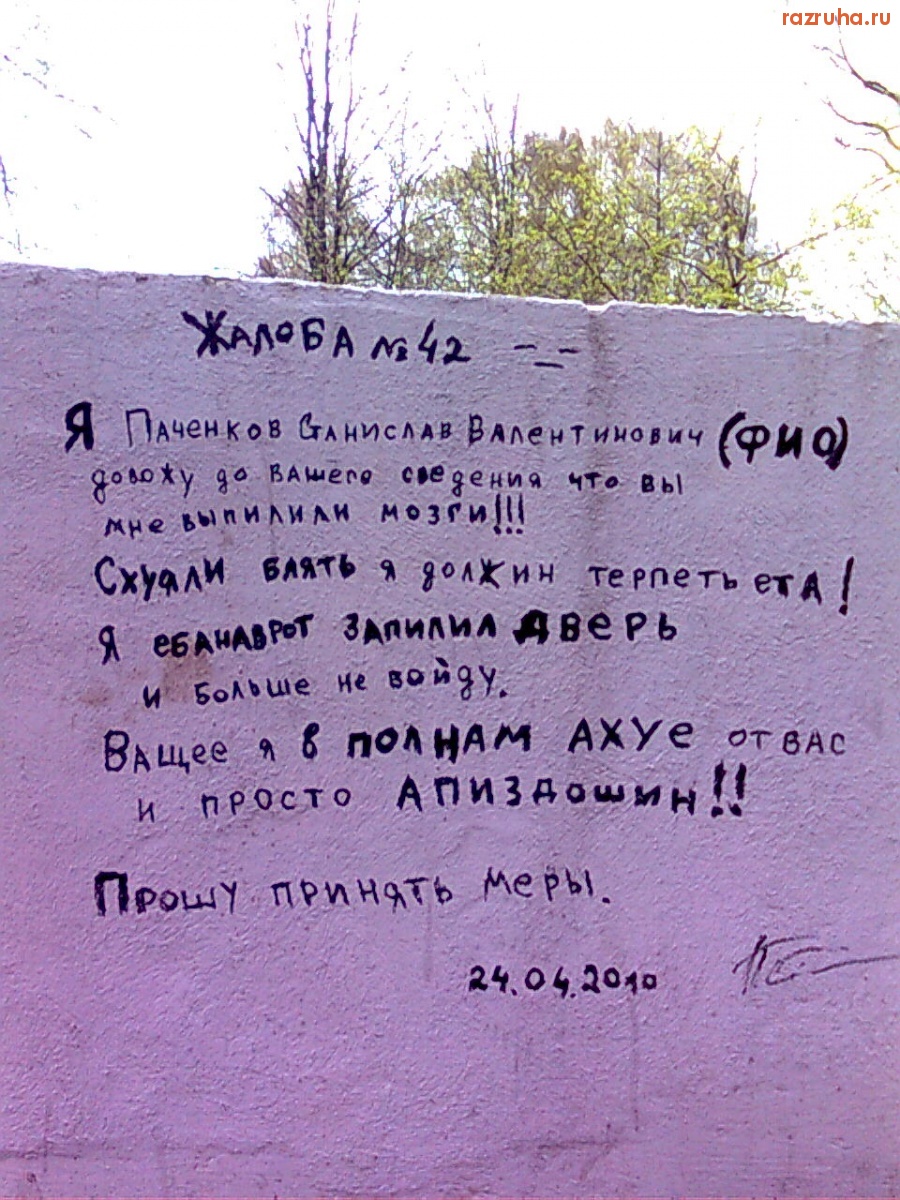 razruha.ru
ЖАЛОБА №42 -_-
Я ПАЧЕНКОВ СТАНИСЛАВ ВАЛЕНТИНОВИЧ (ФИО)
довожу до вашего сведения что вы
мне выпилили мозги!!!
Схуяли блять я должин терпеть ета!
Я ебанаврот запилил дверь
и больше не войду.
Ващее я в полнам ахуе от вас
и просто апиздошин!!
Прошу принять меры.
24.04.2010